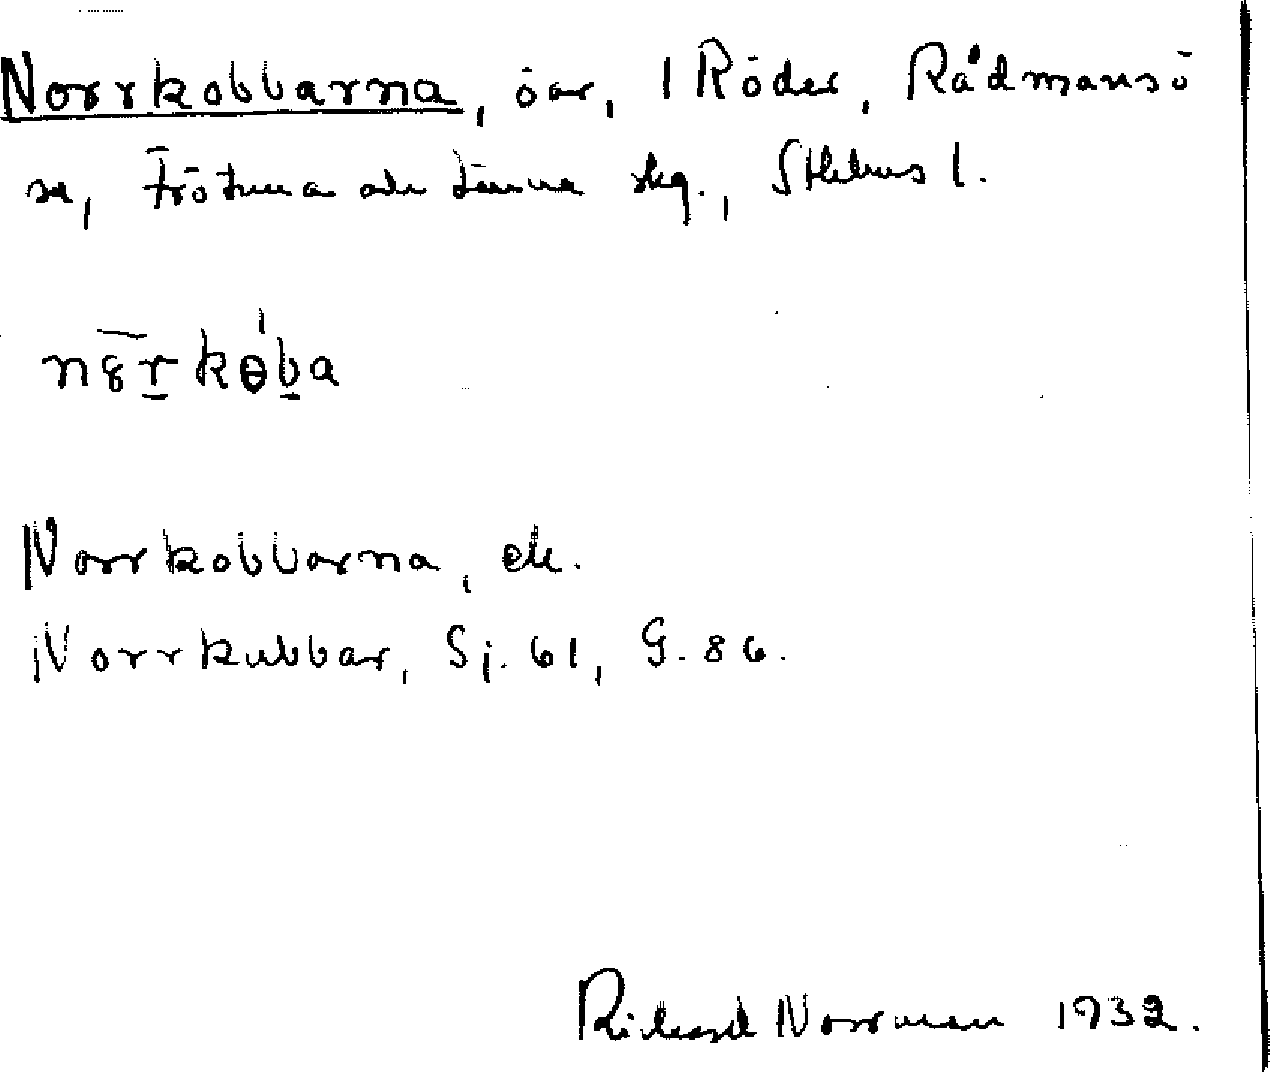 Norrkobbarna, öar, 1 Röder, Rådmansö
sn, Frötuna och Länna skg., Sthlms l.
nȣrkɵba
Norrkobbarna, ek.
Norrkubbar, Sj. 61, G. 86.
Rickard Norrman 1932.